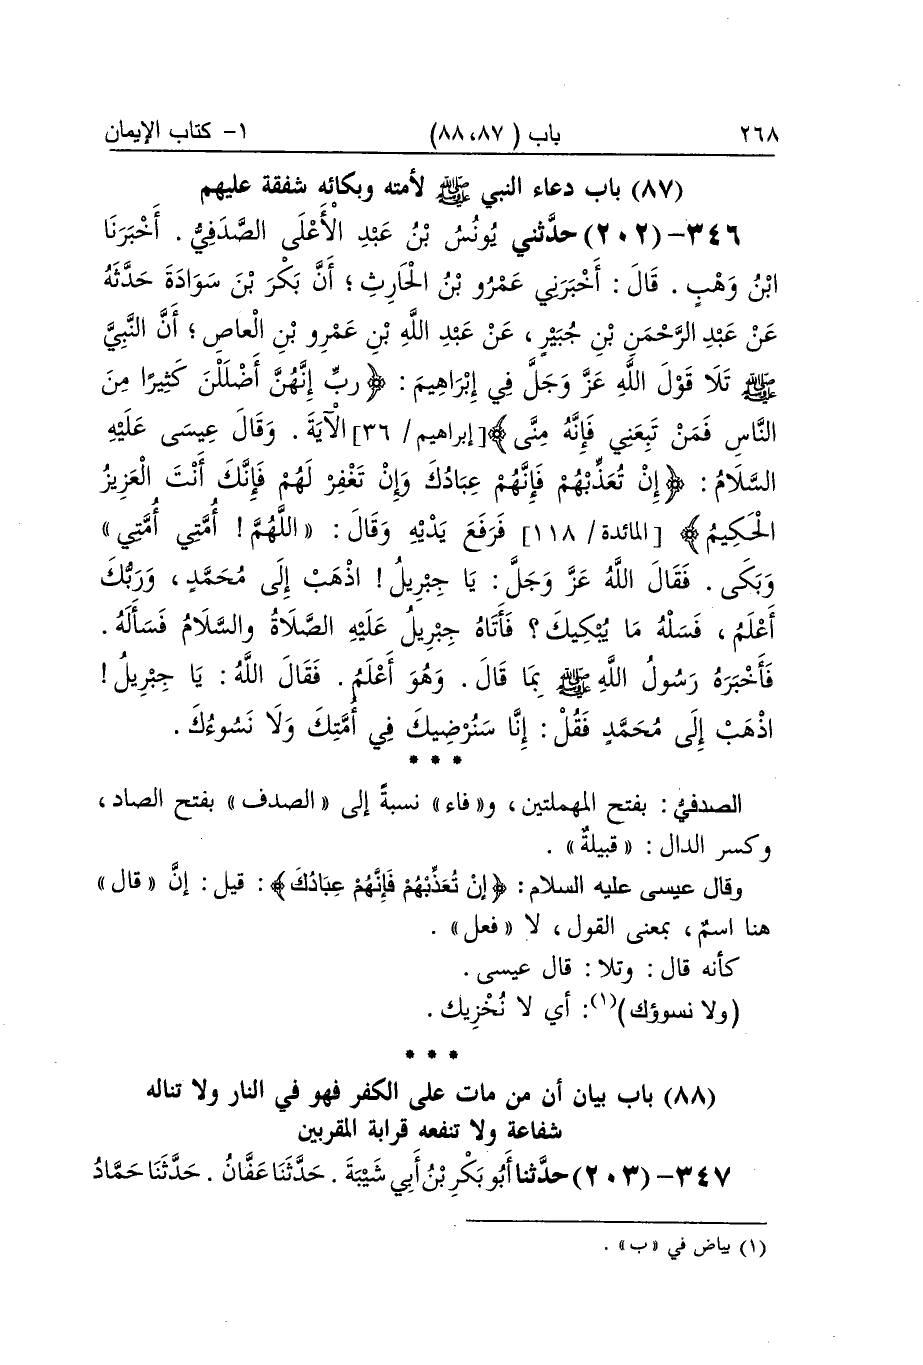 ٢٦٨ باب ( ٨٧، ٨٨) ١- كتاب الإيمان
(٨٧) باب دعاء النبي ﷺ لأمته وبكائه شفقة عليهم
٣٤٦- (٢٠٢) حدَّثني يُونُسُ بْنُ عَبْدِ الْأَعْلَى الصَّدَفِيُّ . أَخْبَرَنَا
ابْنُ وَهْبٍ . قَالَ : أَخْبَرَنِي عَمْرُو بْنُ الْحَارِثِ ؛ أَنَّ بَكْرَ بْنَ سَوَادَةَ حَدَّثَهُ
عَنْ عَبْدِ الرَّحْمَنِ بْنِ جُبَيْرٍ ، عَنْ عَبْدِ اللَّهِ بْنِ عَمْرِو بْنِ الْعاصِ ؛ أَنَّ النَّبِيَّ
ﷺ تَلَا قَوْلَ اللَّهِ عَزَّ وَجَلَّ فِي إِبْرَاهِيمَ : ﴿ ربِّ إِنَّهُنَّ أَضْلَلْنَ كَثِيرًا مِنَ
النَّاسِ فَمَنْ تَبِعَنِي فَإِنَّهُ مِنِّى ﴾[إبراهيم/ ٣٦] الْآيَةَ . وَقَالَ عِيسَى عَلَيْهِ
السَّلَامُ : ﴿ إِنْ تُعَذِّبْهُمْ فَإِنَّهُمْ عِبَادُكَ وَإِنْ تَغْفِرْ لَهُمْ فَإِنَّكَ أَنْتَ الْعَزِيزُ
الْحَكِيمُ ﴾ [المائدة/ ١١٨] فَرَفَعَ يَدَيْهِ وَقَالَ : « اللَّهُمَّ ! أُمَّتِي أُمَّتِي »
وَبَكَى . فَقَالَ اللَّهُ عَزَّ وَجَلَّ : يَا جِبْرِيلُ ! اذْهَبْ إِلَى مُحَمَّدٍ ، وَرَبُّكَ
أَعْلَمُ ، فَسَلْهُ مَا يُبْكِيكَ ؟ فَأَتَاهُ جِبْرِيلُ عَلَيْهِ الصَّلَاةُ والسَّلَامُ فَسَأَلَهُ .
فَأَخْبَرَهُ رَسُولُ اللَّهِ ﷺ بِمَا قَالَ . وَهُوَ أَعْلَمُ . فَقَالَ اللَّهُ : يَا جِبْرِيلُ !
اذْهَبْ إِلَى مُحَمَّدٍ فَقُلْ : إِنَّا سَنُرْضِيكَ فِي أُمَّتِكَ وَلَا نَسُوءُكَ .
* * *
الصدفيُّ : بفتح المهملتين ، و« فاء » نسبةً إلى « الصدف » بفتح الصاد ،
وكسر الدال : « قبيلةٌ » .
وقال عيسى عليه السلام : ﴿ إِنْ تُعَذِّبْهُمْ فَإِنَّهُمْ عِبَادُكَ ﴾ : قيل : إنَّ « قال »
هنا اسمٌ ، بمعنى القول ، لا « فعل » .
كأنه قال : وتلا : قال عيسى .
(ولا نسوؤك)(١) : أي لا نُخْزِيك .
* * *
(٨٨) باب بيان أن من مات على الكفر فهو في النار ولا تناله
شفاعة ولا تنفعه قرابة المقربين
٣٤٧- (٢٠٣) حدَّثنا أَبُو بَكْرِ بْنُ أَبِي شَيْبَةَ . حَدَّثَنَا عَفَّانُ . حَدَّثَنَا حَمَّادُ
(١) بياض في « ب » .